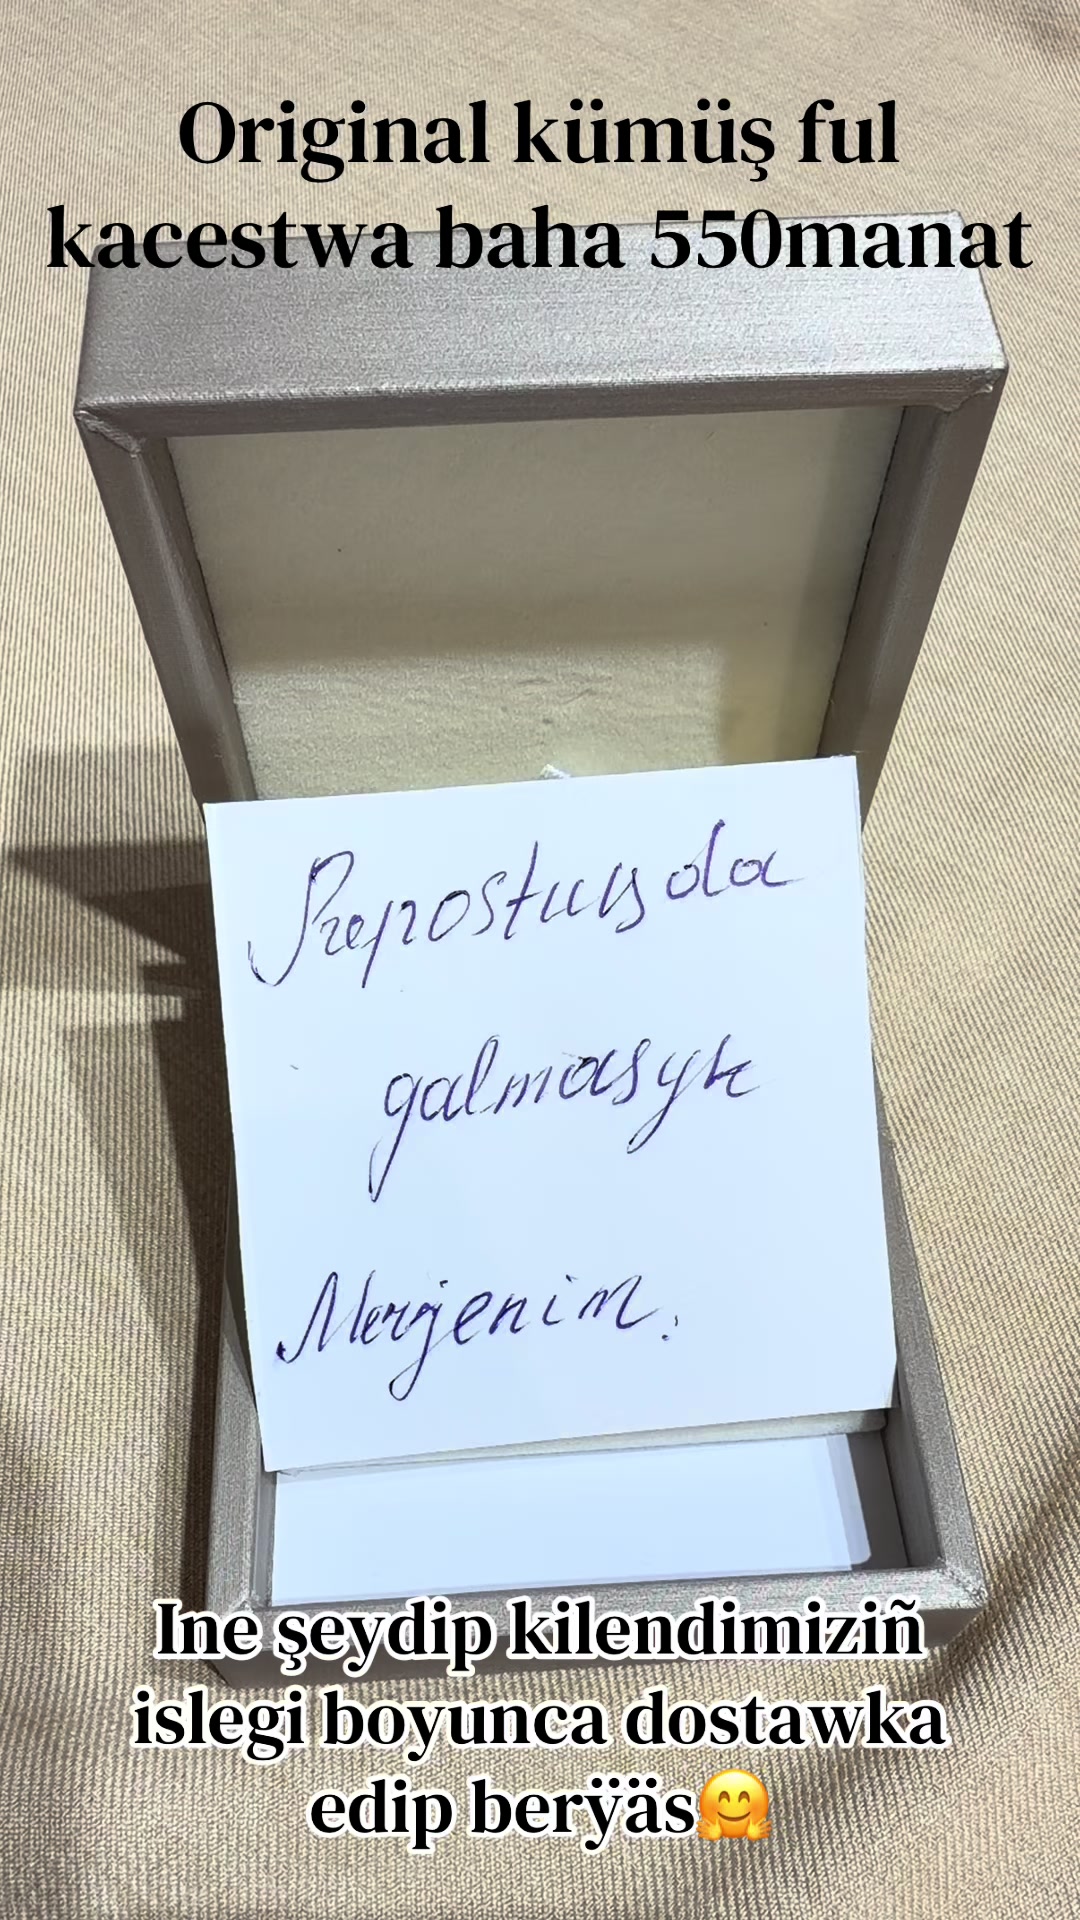 Original kümüş ful
kacestwa baha 550manat
Repostuñda
galmasyk
Merjenim.
Ine şeydip kilendimiziñ
islegi boyunca dostawka
edip berÿäs🤗